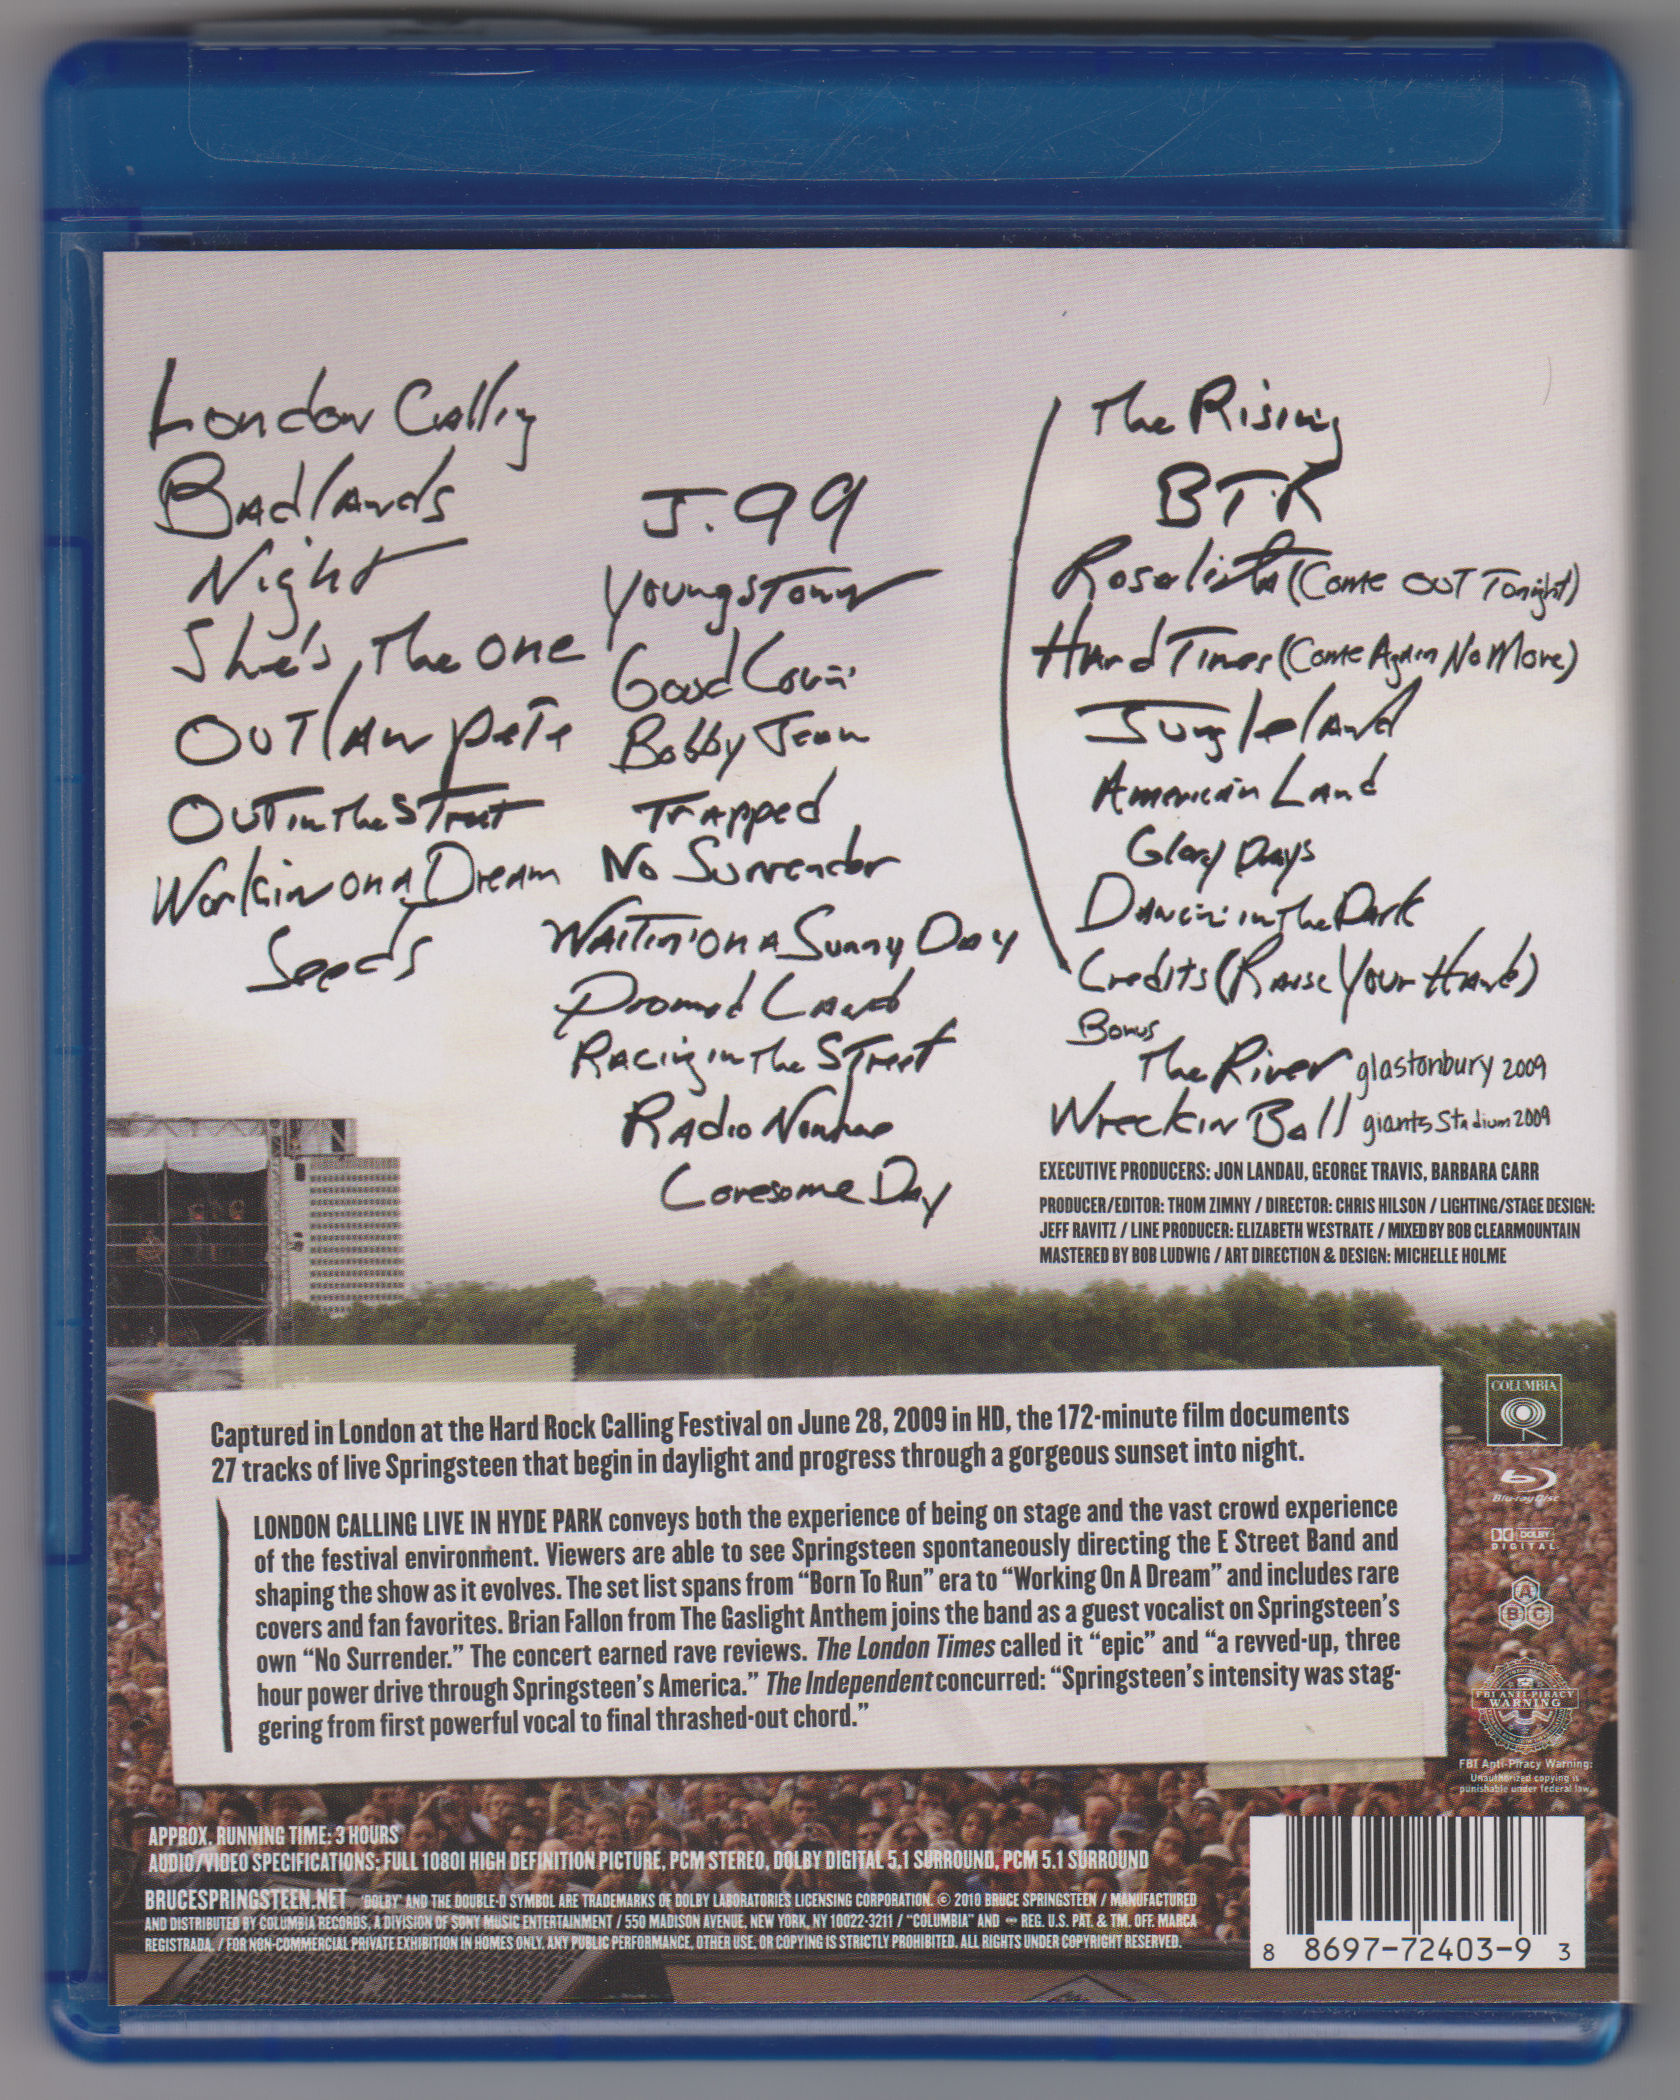 London Calling
Badlands
Night
She's the One
Outlaw Pete
Out in the Street
Workin on a Dream
Seeds
J. 99
Youngstown
Good Lovin'
Bobby Jean
Trapped
No Surrender
Waitin' on a Sunny Day
Promised Land
Racing in the Street
Radio Nowhere
Lonesome Day
The Rising
BTR
Rosalita (Come Out Tonight)
Hard Times (Come Again No More)
Jungleland
American Land
Glory Days
Dancin' in the Dark
Credits (Raise Your Hand)
Bonus
The River glastonbury 2009
Wreckin Ball giants Stadium 2009
EXECUTIVE PRODUCERS: JON LANDAU, GEORGE TRAVIS, BARBARA CARR
PRODUCER/EDITOR: THOM ZIMNY / DIRECTOR: CHRIS HILSON / LIGHTING/STAGE DESIGN:
JEFF RAVITZ / LINE PRODUCER: ELIZABETH WESTRATE / MIXED BY BOB CLEARMOUNTAIN
MASTERED BY BOB LUDWIG / ART DIRECTION & DESIGN: MICHELLE HOLME
Captured in London at the Hard Rock Calling Festival on June 28, 2009 in HD, the 172-minute film documents
27 tracks of live Springsteen that begin in daylight and progress through a gorgeous sunset into night.
LONDON CALLING LIVE IN HYDE PARK conveys both the experience of being on stage and the vast crowd experience
of the festival environment. Viewers are able to see Springsteen spontaneously directing the E Street Band and
shaping the show as it evolves. The set list spans from “Born To Run” era to “Working On A Dream” and includes rare
covers and fan favorites. Brian Fallon from The Gaslight Anthem joins the band as a guest vocalist on Springsteen's
own “No Surrender.” The concert earned rave reviews. The London Times called it “epic” and “a revved-up, three
hour power drive through Springsteen's America.” The Independent concurred: “Springsteen's intensity was stag-
gering from first powerful vocal to final thrashed-out chord.”
COLUMBIA
Blu-ray Disc
DOLBY
DIGITAL
A
B C
FBI ANTI-PIRACY
WARNING
FBI Anti-Piracy Warning:
Unauthorized copying is
punishable under federal law.
APPROX. RUNNING TIME: 3 HOURS
AUDIO/VIDEO SPECIFICATIONS: FULL 1080I HIGH DEFINITION PICTURE, PCM STEREO, DOLBY DIGITAL 5.1 SURROUND, PCM 5.1 SURROUND
BRUCESPRINGSTEEN.NET 'DOLBY' AND THE DOUBLE-D SYMBOL ARE TRADEMARKS OF DOLBY LABORATORIES LICENSING CORPORATION. © 2010 BRUCE SPRINGSTEEN / MANUFACTURED
AND DISTRIBUTED BY COLUMBIA RECORDS, A DIVISION OF SONY MUSIC ENTERTAINMENT / 550 MADISON AVENUE, NEW YORK, NY 10022-3211 / "COLUMBIA" AND REG. U.S. PAT. & TM. OFF. MARCA
REGISTRADA. / FOR NON-COMMERCIAL PRIVATE EXHIBITION IN HOMES ONLY. ANY PUBLIC PERFORMANCE, OTHER USE, OR COPYING IS STRICTLY PROHIBITED. ALL RIGHTS UNDER COPYRIGHT RESERVED.
8 8697-72403-9 3